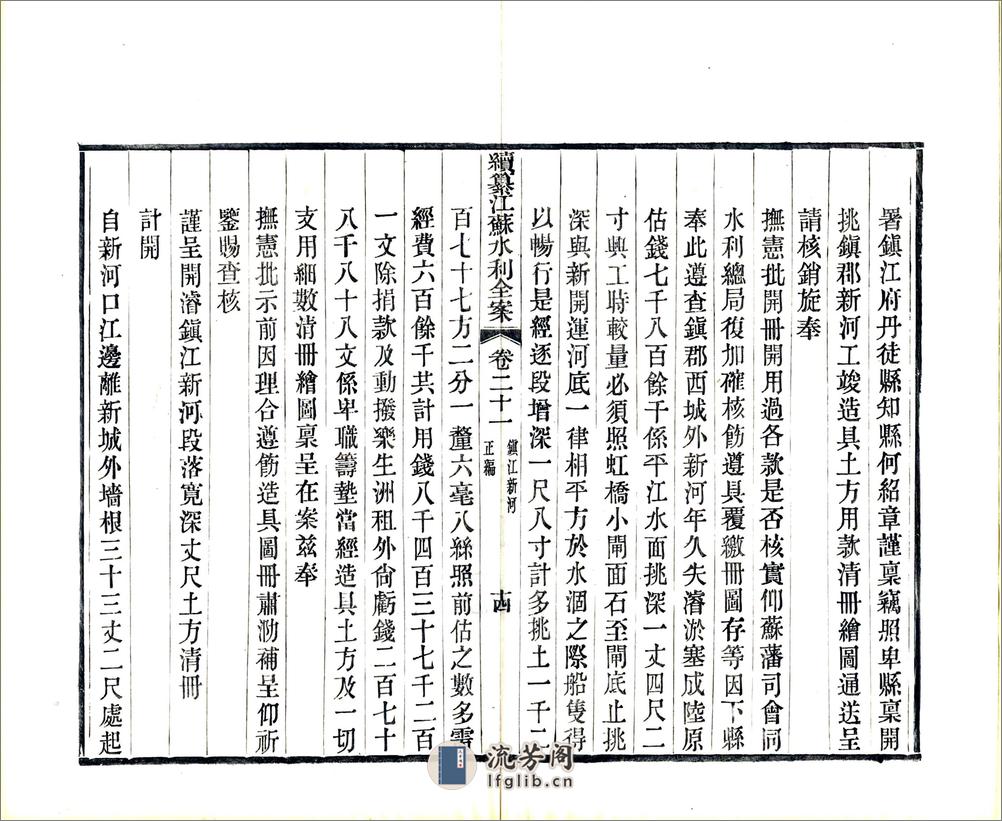 署鎮江府丹徒縣知縣何紹章謹稟竊照卑縣稟開
挑鎮郡新河工竣造具土方用款清冊繪圖通送呈
請核銷旋奉
撫憲批開冊開用過各款是否核實仰蘇藩司會同
水利總局復加確核飭遵具覆繳冊圖存等因下縣
奉此遵查鎮郡西城外新河年久失濬淤塞成陸原
估錢七千八百餘千係平江水面挑深一丈四尺二
寸興工時較量必須照虹橋小閘面石至閘底止挑
深與新開運河底一律相平方於水涸之際船隻得
以暢行是經逐段增深一尺八寸計多挑土一千二
續纂江蘇水利全案
卷二十一
鎮江新河
正編
十四
百七十七方二分一釐六毫八絲照前估之數多需
經費六百餘千共計用錢八千四百三十七千二百
一文除捐款及動撥樂生洲租外尙虧錢二百七十
八千八十八文係卑職籌墊當經造具土方及一切
支用細數清冊繪圖稟呈在案茲奉
撫憲批示前因理合遵飭造具圖冊肅泐補呈仰祈
鑒賜查核
謹呈開濬鎮江新河段落寬深丈尺土方清冊
計開
自新河口江邊離新城外墻根三十三丈二尺處起
流芳阁
lfglib.cn